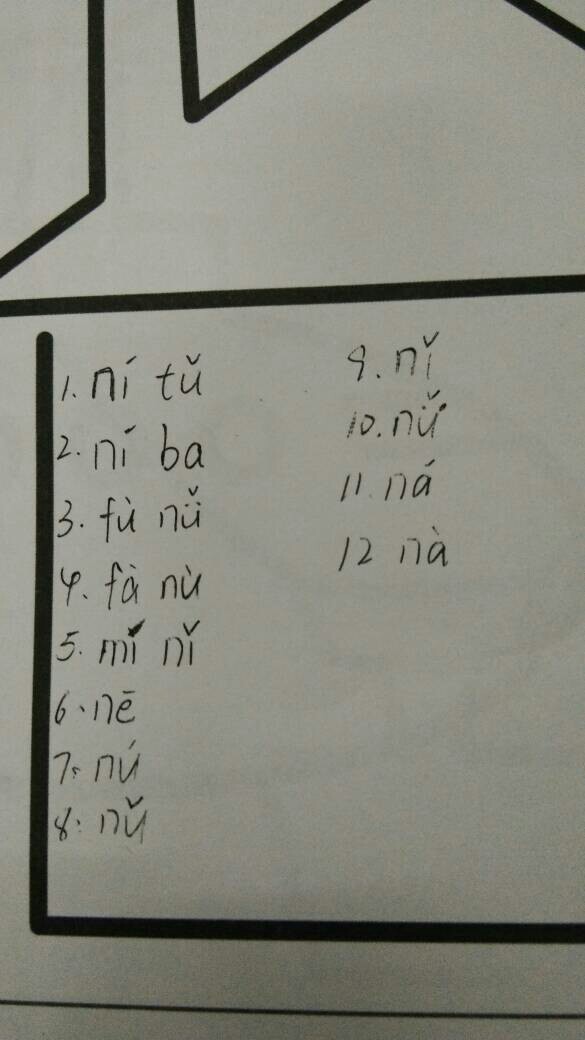 1. ní tǔ
2. ní ba
3. fù nǚ
4. fà nù
5. mí nǐ
6. nē
7. nú
8. nǔ
9. nǐ
10. nǚ
11. ná
12 nà